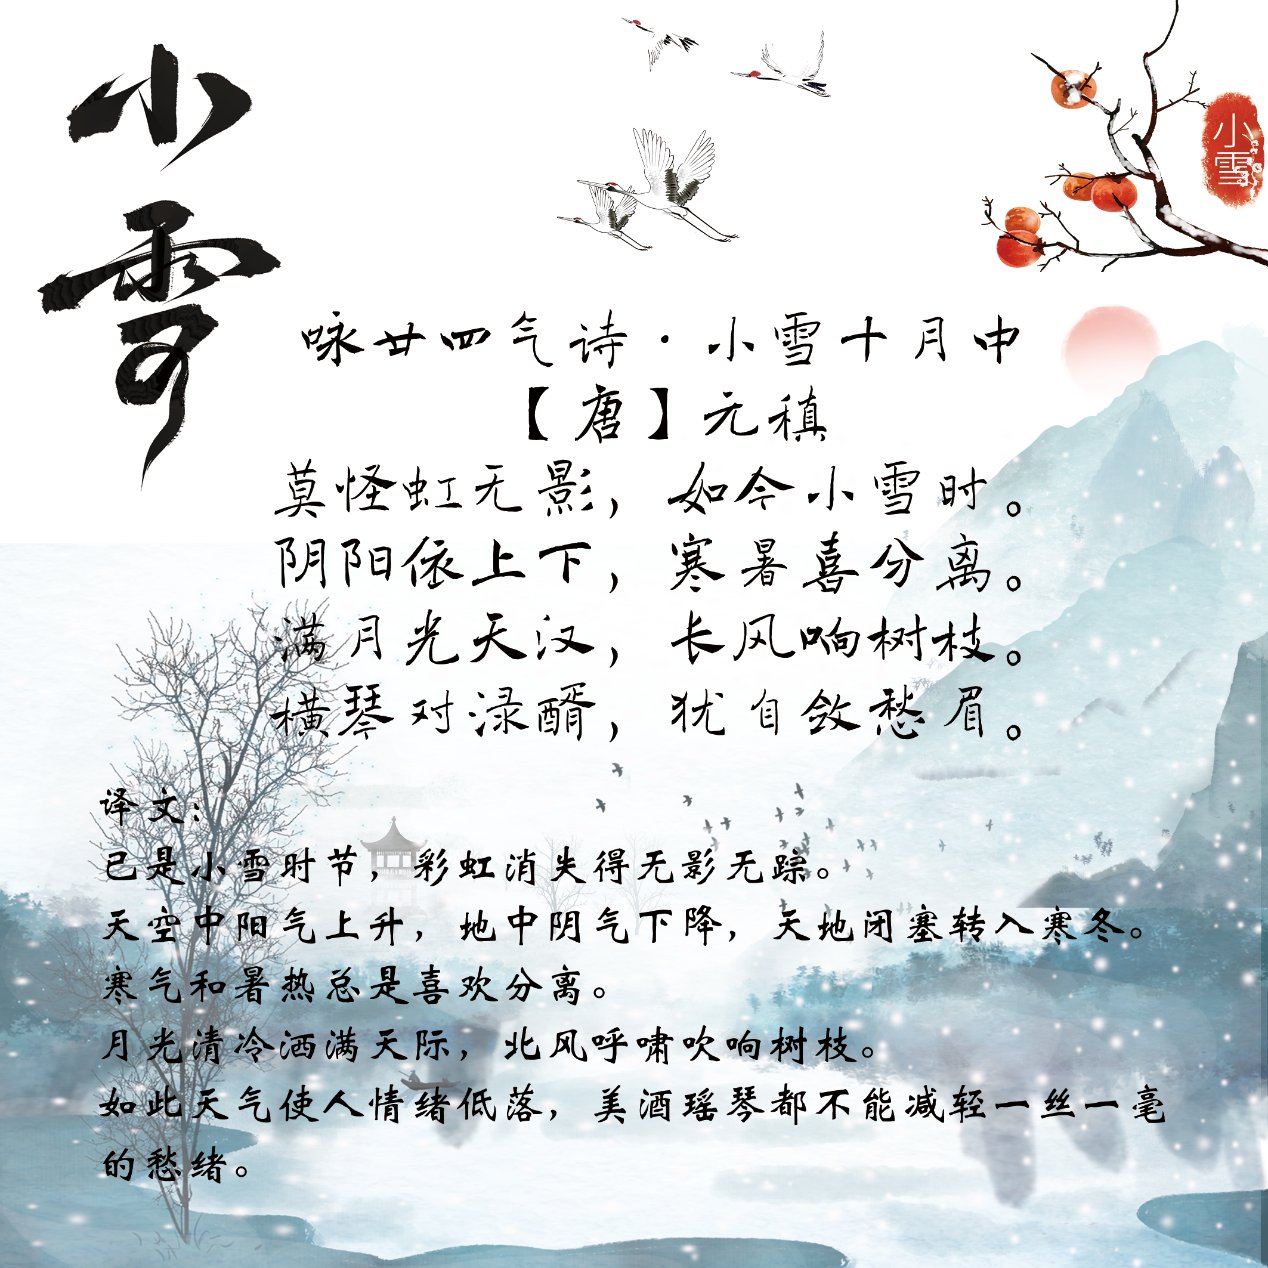 小雪
小雪
咏廿四气诗·小雪十月中
【唐】元稹
莫怪虹无影，如今小雪时。
阴阳依上下，寒暑喜分离。
满月光天汉，长风响树枝。
横琴对渌醑，犹自敛愁眉。
译文：
已是小雪时节，彩虹消失得无影无踪。
天空中阳气上升，地中阴气下降，天地闭塞转入寒冬。
寒气和暑热总是喜欢分离。
月光清冷洒满天际，北风呼啸吹响树枝。
如此天气使人情绪低落，美酒瑶琴都不能减轻一丝一毫
的愁绪。